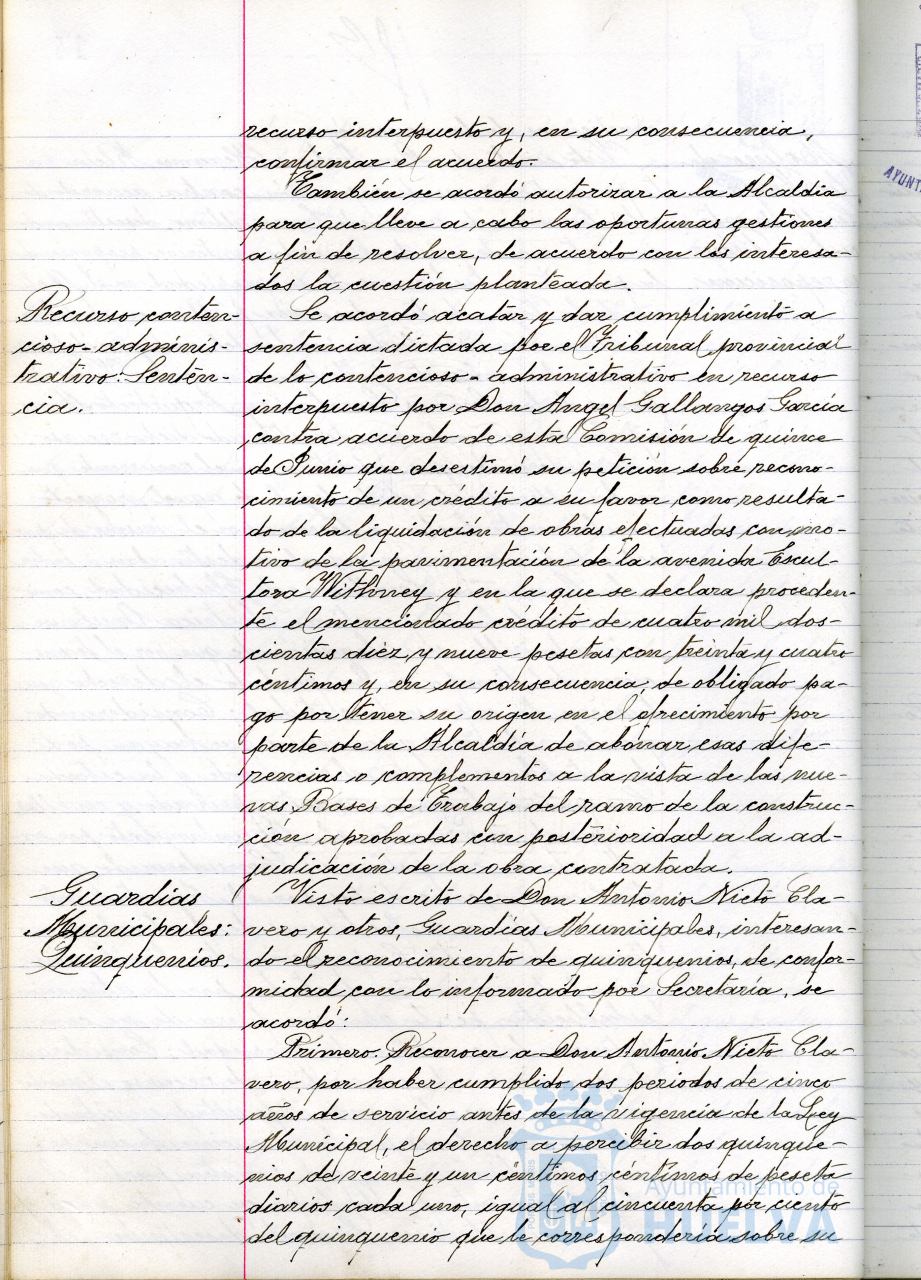 recurso interpuesto y, en su consecuencia,
confirmar el acuerdo.
También se acordó autorizar a la Alcaldía
para que lleve a cabo las oportunas gestiones
a fin de resolver, de acuerdo con los interesa-
dos la cuestión planteada.
Recurso conten-
cioso-adminis-
trativo: Senten-
cia.
Se acordó acatar y dar cumplimiento a
sentencia dictada por el Tribunal provincial
de lo contencioso-administrativo en recurso
interpuesto por Don Angel Gallangos García
contra acuerdo de esta Comisión de quince
de Junio que desestimó su petición sobre recono-
cimiento de un crédito a su favor como resulta-
do de la liquidación de obras efectuadas con mo-
tivo de la pavimentación de la avenida Escul-
tora Withney y en la que se declara proceden-
te el mencionado crédito de cuatro mil dos-
cientas diez y nueve pesetas con treinta y cuatro
céntimos y, en su consecuencia, de obligado pa-
go por tener su origen en el ofrecimiento por
parte de la Alcaldía de abonar esas dife-
rencias o complementos a la vista de las nue-
vas Bases de Trabajo del ramo de la construc-
ción aprobadas con posterioridad a la ad-
judicación de la obra contratada.
Guardias
Municipales:
Quinquenios.
Visto escrito de Don Antonio Nieto Cla-
vero y otros, Guardias Municipales, interesan-
do el reconocimiento de quinquenios, de confor-
midad con lo informado por Secretaría, se
acordó:
Primero: Reconocer a Don Antonio Nieto Cla-
vero, por haber cumplido dos periodos de cinco
años de servicio antes de la vigencia de la Ley
Municipal, el derecho a percibir dos quinque-
nios de veinte y un céntimos céntimos de peseta
diarios cada uno, igual al cincuenta por ciento
del quinquenio que le correspondería sobre su
Ayuntamiento de
HUELVA